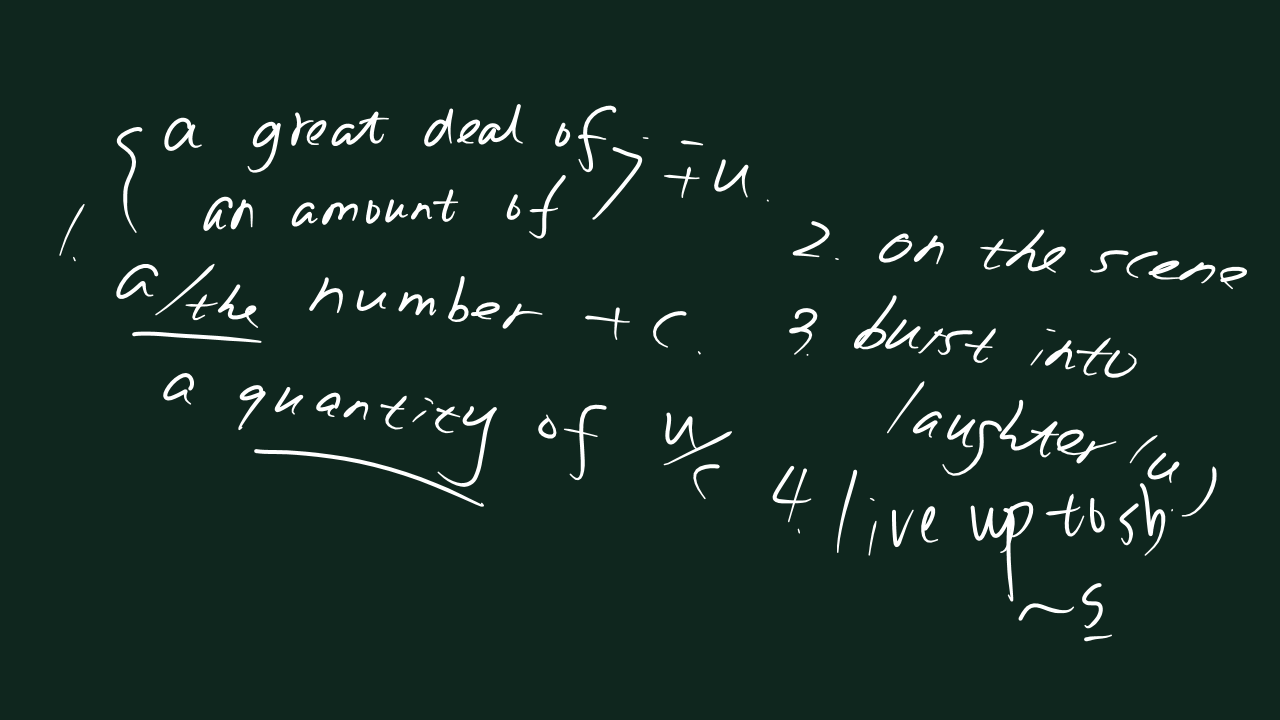 1. { a great deal of
an amount of } + u.
a/the number + c.
a quantity of u/c
2. on the scene
3. burst into
laughter (u)
4. live up to sb.
~s